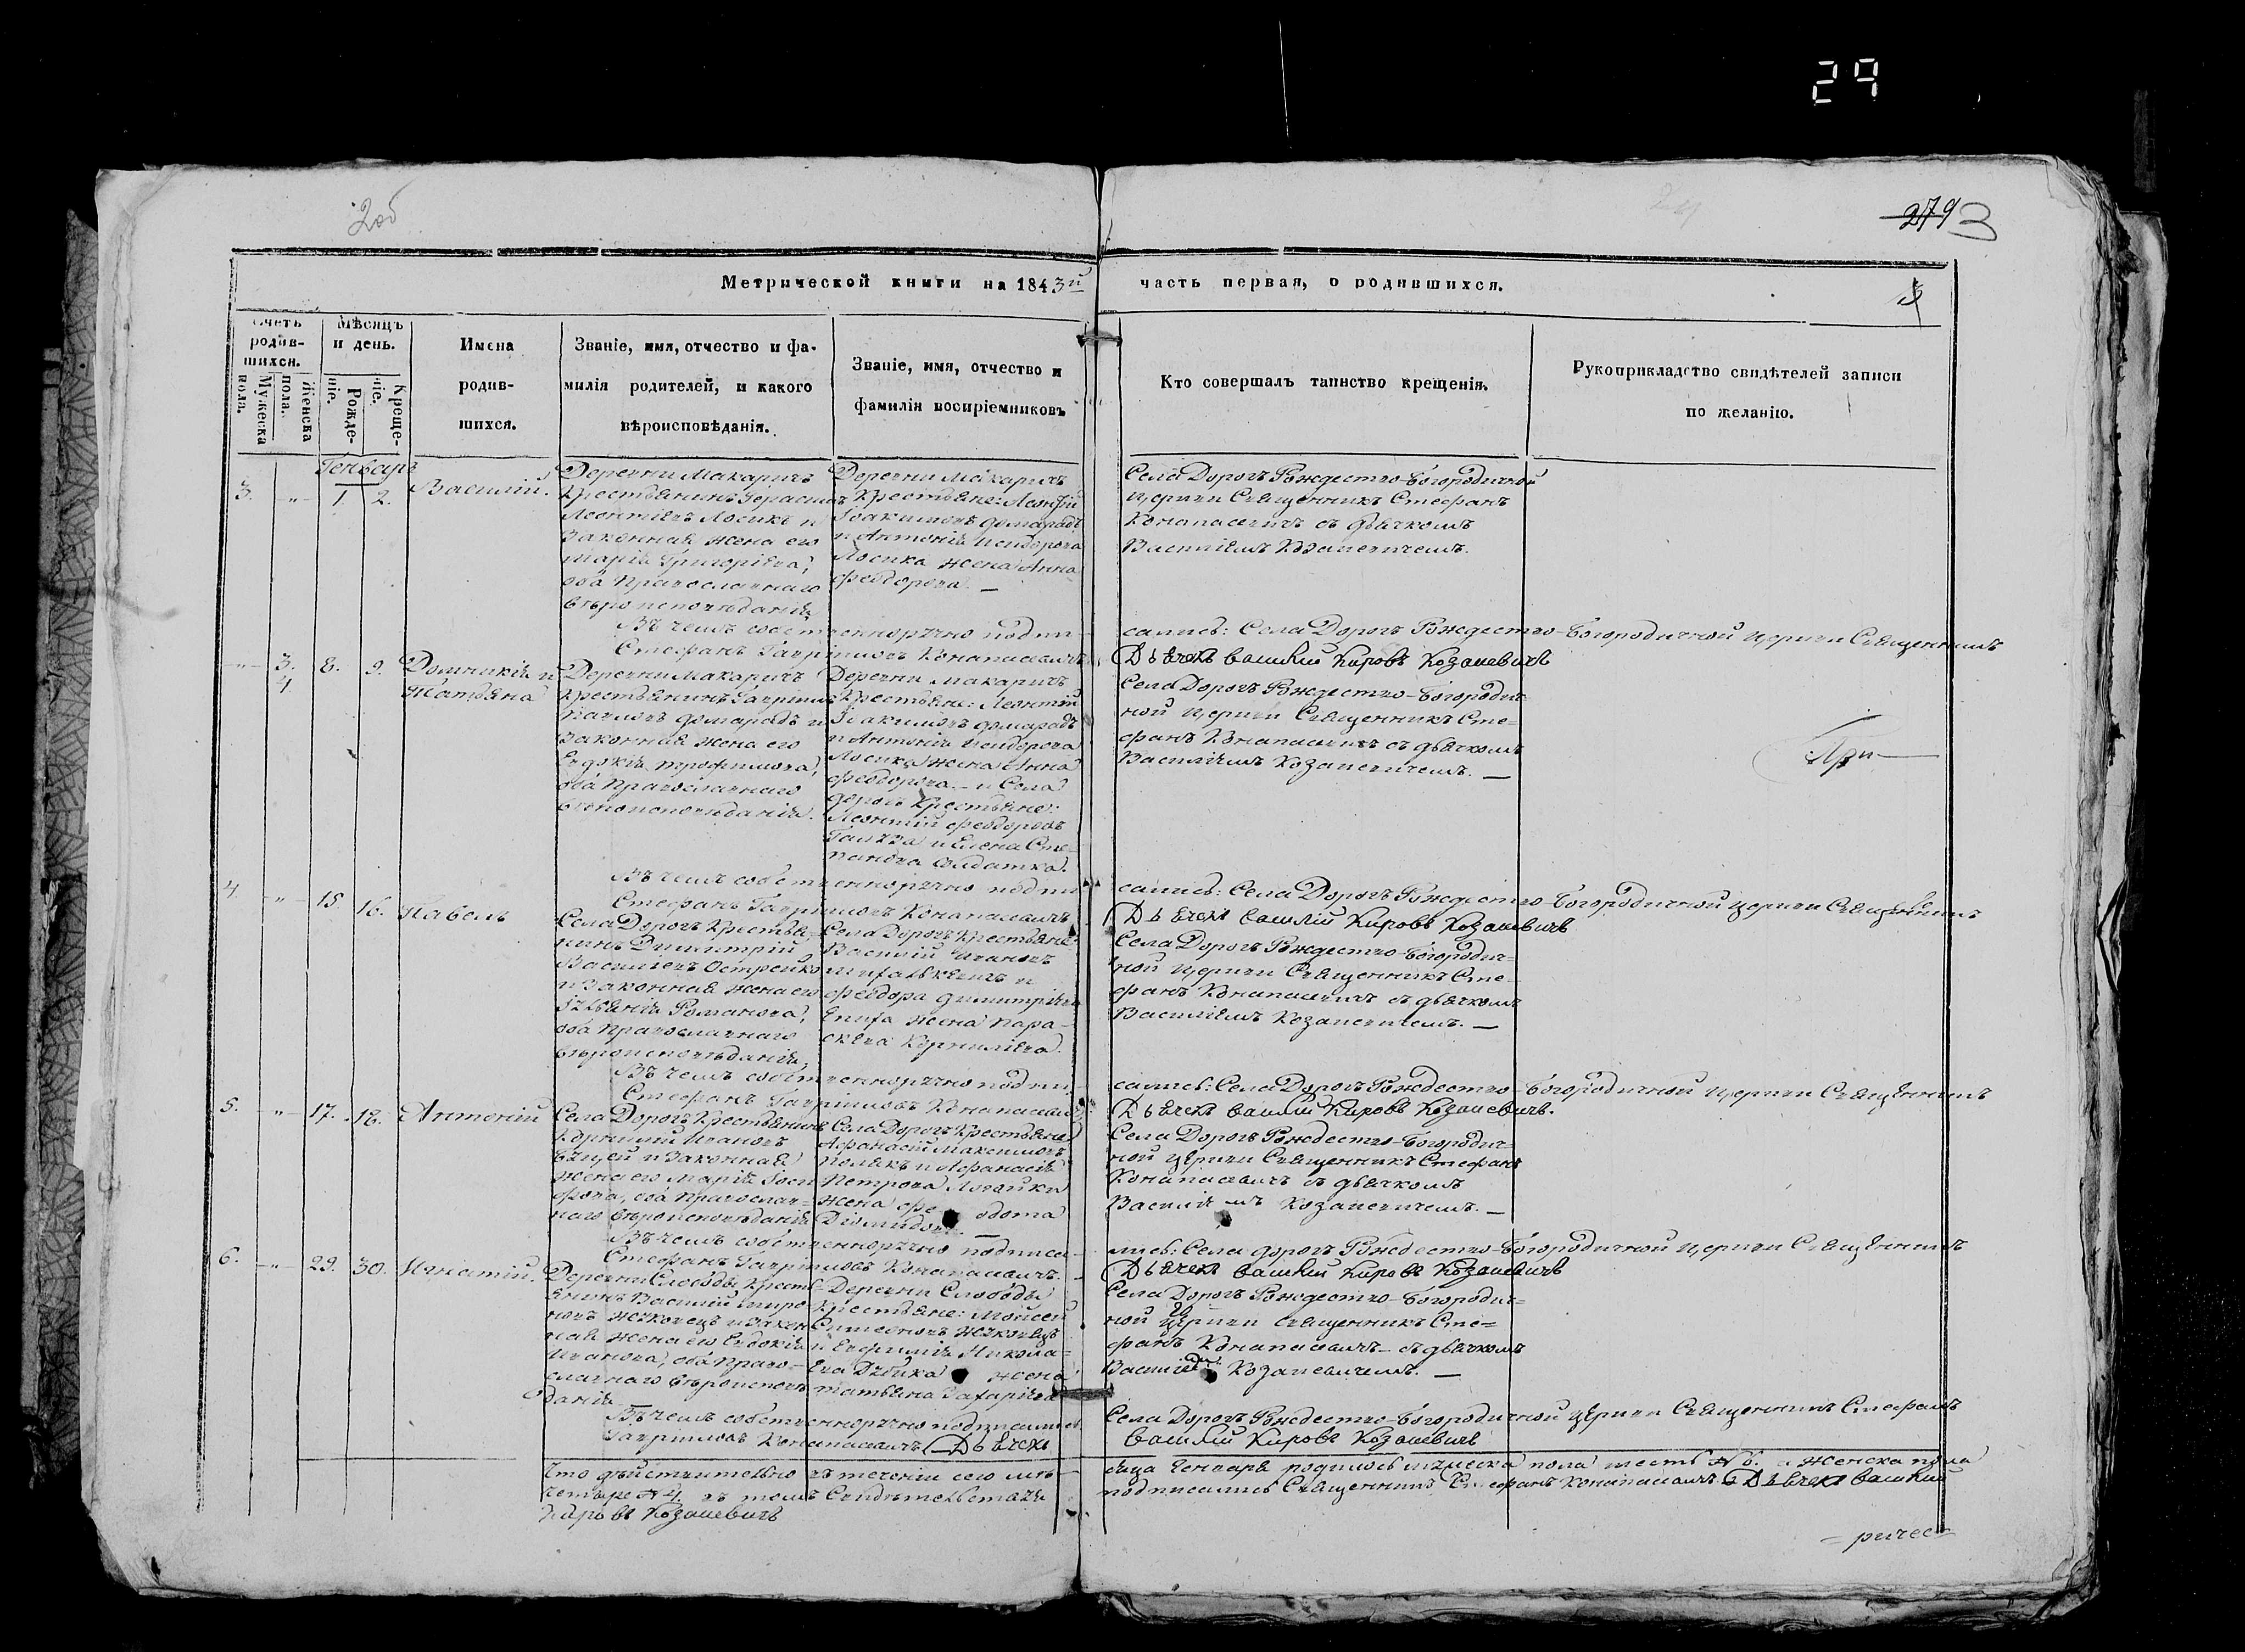 29
2об
279 3
Метрической книги на 1843й часть первая, о родившихся.
Счетъ родив-шихся.
Мужеска пола.
Женска пола.
Мѣсяцъ и день.
Рожде-ніе.
Креще-ніе.
Имена
родив-
шихся.
Званіе, имя, отчество и фа-
милія родителей, и какого
вѣроисповѣданія.
Званіе, имя, отчество и
фамилія воспріемниковъ
Кто совершалъ таинство крещенія.
Рукоприкладство свидѣтелей записи
по желанію.
Генварь
3. -"- 1. 2. Василій.
Деревни Макаричъ
Крестьянинъ Герасимъ
Леонтіевъ Лосикъ и
законная жена его
Марія Григоріева,
оба Православнаго
вѣроисповѣданія
Деревни Макаричъ
Крестьяне: Леонтій
Іоакимовъ Домарадъ
и Антонія Исидорова
Лосика жена Анна
Феодорова. —
Села Дорогъ Рождество-Богородичной
Церкви Священникъ Стефанъ
Конапасевичъ съ дьячкомъ
Василіемъ Козакевичемъ.
Въ чемъ собственноручно подпи-
сались: Села Дорогъ Рождество-Богородичной Церкви Священникъ
Стефанъ Гавріиловъ Конапасевичъ
Дьячекъ Василій Кировъ Козакевичъ
-"- 3. 4 8. 9. Домникія и
Татьяна
Деревни Макаричъ
Крестьянинъ Гавріилъ
Павловъ Домарадъ и
законная жена его
Евдокія Трофимова,
оба Православнаго
вѣроисповѣданія.
Деревни Макаричъ
Крестьяне: Леонтій
Іоакимовъ Домарадъ
и Антонія Исидорова
Лосика жена Анна
Феодорова — и Села
Дорогъ Крестьяне:
Леонтій Феодоровъ
и Елена Сте-
панова Солдатка.
Села Дорогъ Рождество-Богородич-
ной Церкви Священникъ Сте=
фанъ Конапасевичъ съ дьячкомъ
Василіемъ Козакевичемъ. —
При
Въ чемъ собственноручно подпи
сались: Села Дорогъ Рождество-Богородичной Церкви Священникъ
Стефанъ Гавріиловъ Конапасевичъ
Дьячекъ Василій Кировъ Козакевичъ
4. -"- 15. 16. Павелъ
Села Дорогъ Крестья-
нинъ Димитрій
Васильевъ Острейко
и законная жена его
Романова,
оба Православнаго
вѣроисповѣданія.
Села Дорогъ Крестьяне:
Василій Ивановъ
Михалькевичъ и
Феодора Димитріева
жена Пара-
скева Корниліева.
Села Дорогъ Рождество-Богородич-
ной Церкви Священникъ Сте-
фанъ Конапасевичъ съ дьячкомъ
Василіемъ Козакевичемъ. —
Въ чемъ собственноручно подпи-
сались: Села Дорогъ Рождество-Богородичной Церкви Священникъ
Стефанъ Гавріиловъ Конапасевичъ
Дьячекъ Василій Кировъ Козакевичъ.
5. -"- 17. 18. Антоній
Села Дорогъ Крестьянинъ
Корнилій Ивановъ
и законная
жена его Марія Іоси
фова, оба Православ=
наго вѣроисповѣданія
Села Дорогъ Крестьяне
Афанасій Максимовъ
и Афанасія
Петрова
жена Федота
Діомидова. —
Села Дорогъ Рождество-Богородич=
ной Церкви Священникъ Стефанъ
Конапасевичъ съ дьячкомъ
Василіемъ Козакевичемъ. —
Въ чемъ собственноручно подписа-
лись: Села Дорогъ Рождество-Богородичной Церкви Священникъ
Стефанъ Гавріиловъ Конапасевичъ.
Дьячекъ Василій Кировъ Козакевичъ
6. -"- 29. 30. Игнатій.
Деревни Слободы Крестья-
нинъ Василій Миро-
новъ и закон
ная жена его Евдокія
Иванова, оба Право-
славнаго вѣроисповѣ
данія
Деревни Слободы
Крестьяне: Мойсей
и Евфимія Никола=
ева жена
Татьяна Захаріева
Села Дорогъ Рождество-Богородич=
ной Церкви Священникъ Сте=
фанъ Конапасевичъ съ дьячкомъ
Василіемъ Козакевичемъ. —
Въ чемъ собственноручно подписались
Села Дорогъ Рождество-Богородичной Церкви Священникъ Стефанъ
Гавріиловъ Конапасевичъ Дьячекъ
Василій Кировъ Козакевичъ
Что дѣйствительно въ теченіи сего мѣ-
сяца Генваря родилось мужеска пола шесть № 6. а женска пола
четыре № 4. въ томъ Свидѣтельствуя
подписались Священникъ Стефанъ Конапасевичъ Дьячекъ Василій
Кировъ Козакевичъ
= ричес=